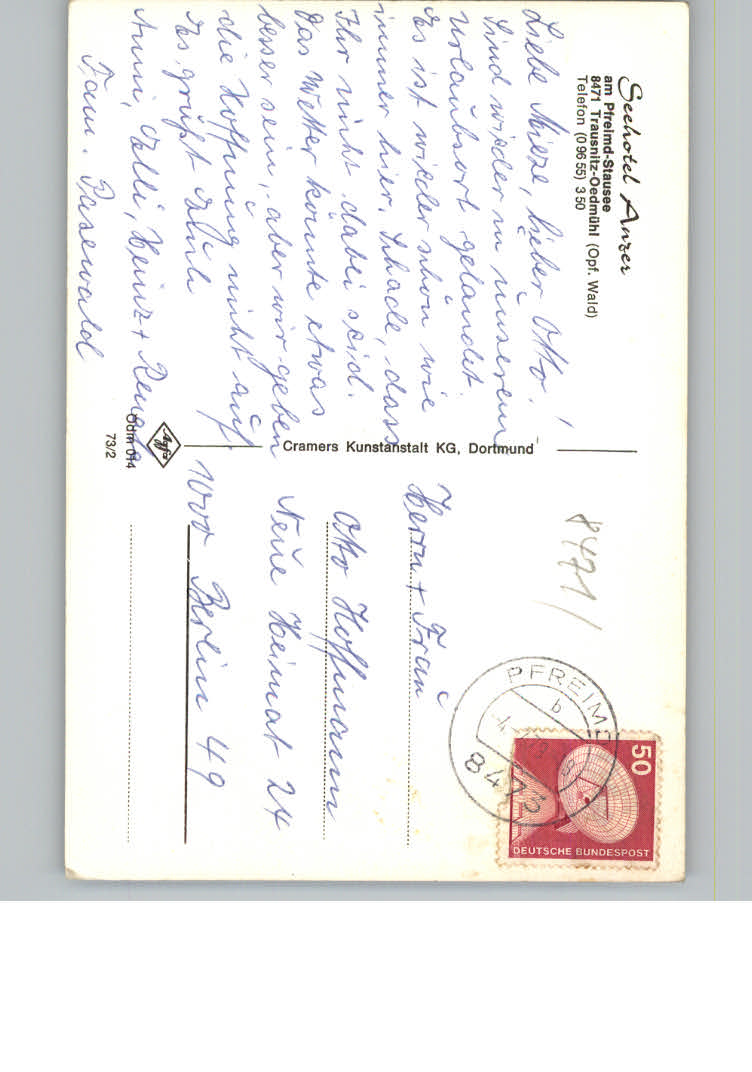 Seehotel Anzer
am Pfreimd-Stausee
8471 Trausnitz-Oedmühl (Opf. Wald)
Telefon (0 96 55) 3 50
Liebe Mieze, lieber Otto!
Sind wieder in unserem
Urlaubsort gelandet.
Es ist wieder schön wie
immer hier. Schade, dass
Ihr nicht dabei seid.
Das Wetter könnte etwas
besser sein, aber wir geben
die Hoffnung nicht auf.
Es grüßt Euch
Anni, Elli, Heinz +
Fam. Pasewald
Cramers Kunstanstalt KG, Dortmund
Agfa
Ödm 014
73/2
8471/
PFREIMD
b
8473
50
DEUTSCHE BUNDESPOST
Herrn + Frau
Otto Hoffmann
Neue Heimat 24
1000 Berlin 49